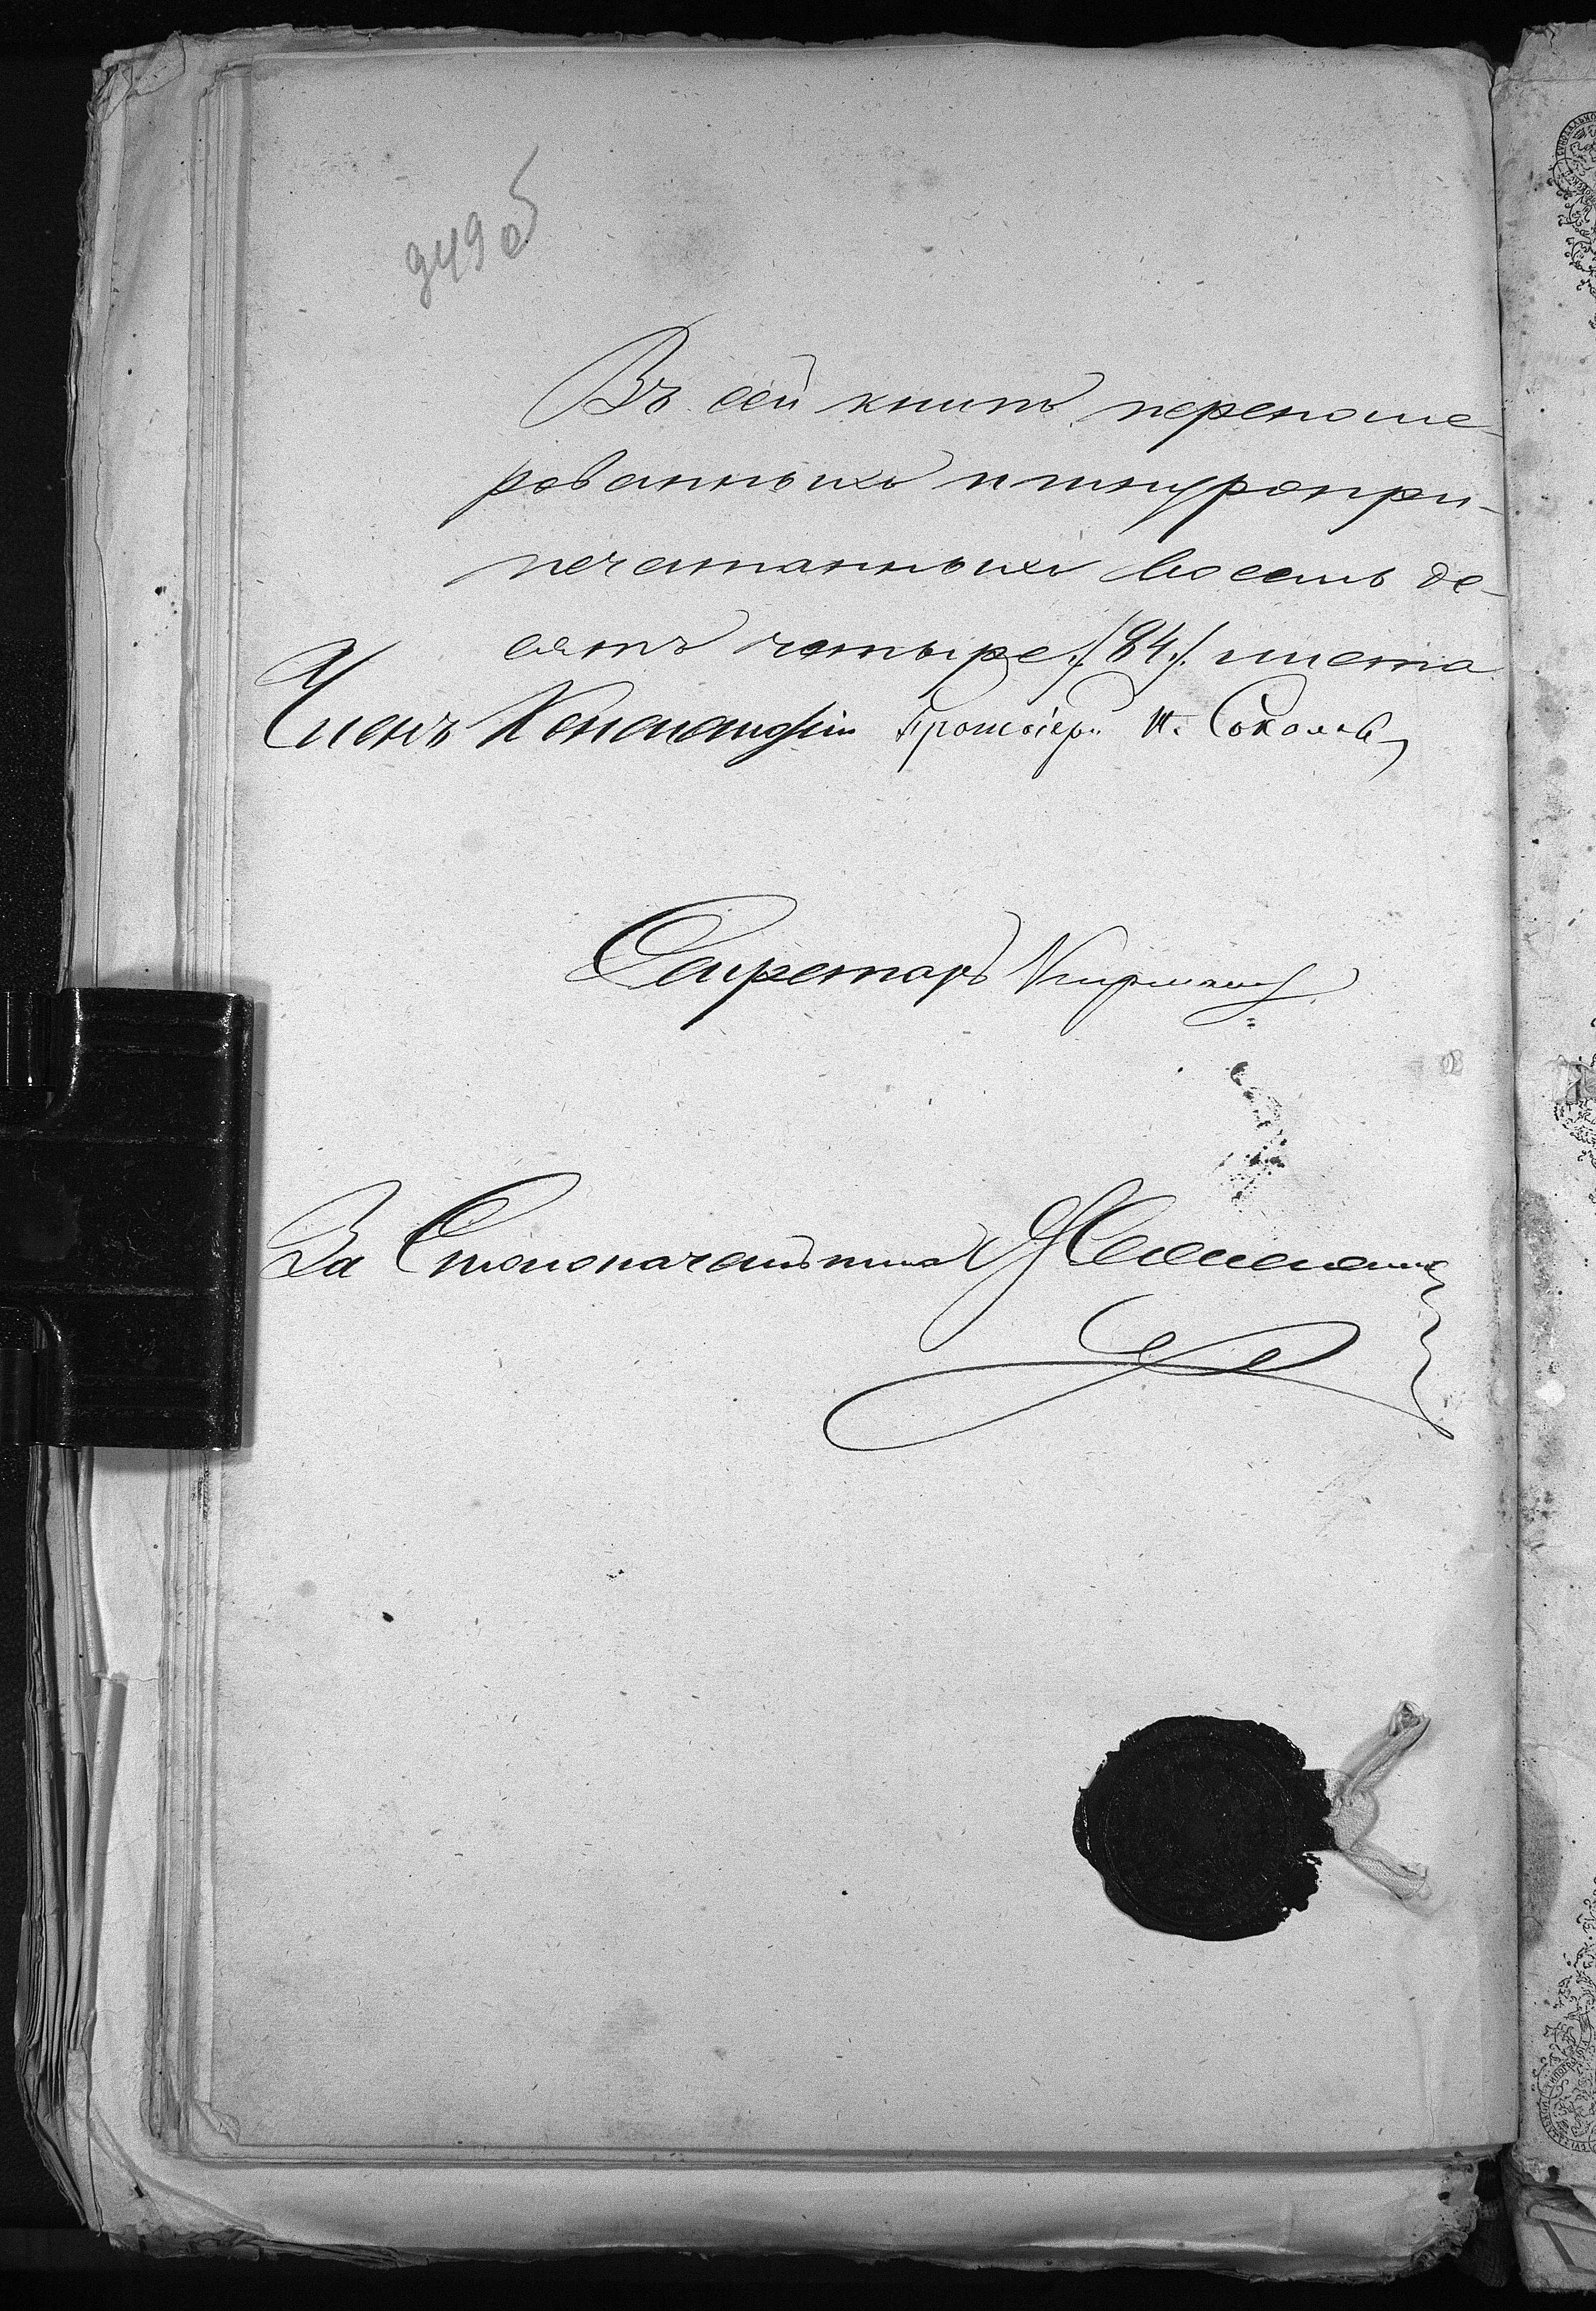 949 об
Въ сей книгѣ перенуме-
рованныхъ и шнуропри-
печатанныхъ восемь де-
сятъ четыре /84/. листа.
Членъ Консисторіи Протоіерей Соколовъ
Секретарь
За Столоначальника